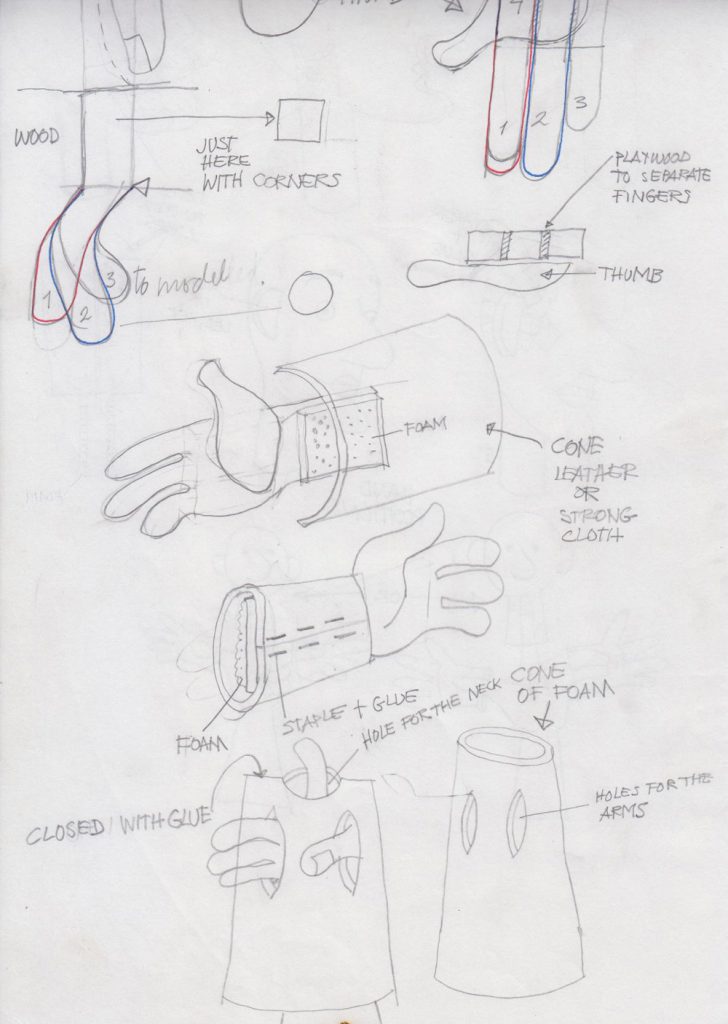 4
1
2
3
WOOD
JUST
HERE
WITH CORNERS
PLAYWOOD
TO SEPARATE
FINGERS
THUMB
1
2
3
to model.
FOAM
CONE
LEATHER
OR
STRONG
CLOTH
STAPLE + GLUE
FOAM
HOLE FOR THE NECK
CONE
OF FOAM
CLOSED WITH GLUE
HOLES FOR THE
ARMS